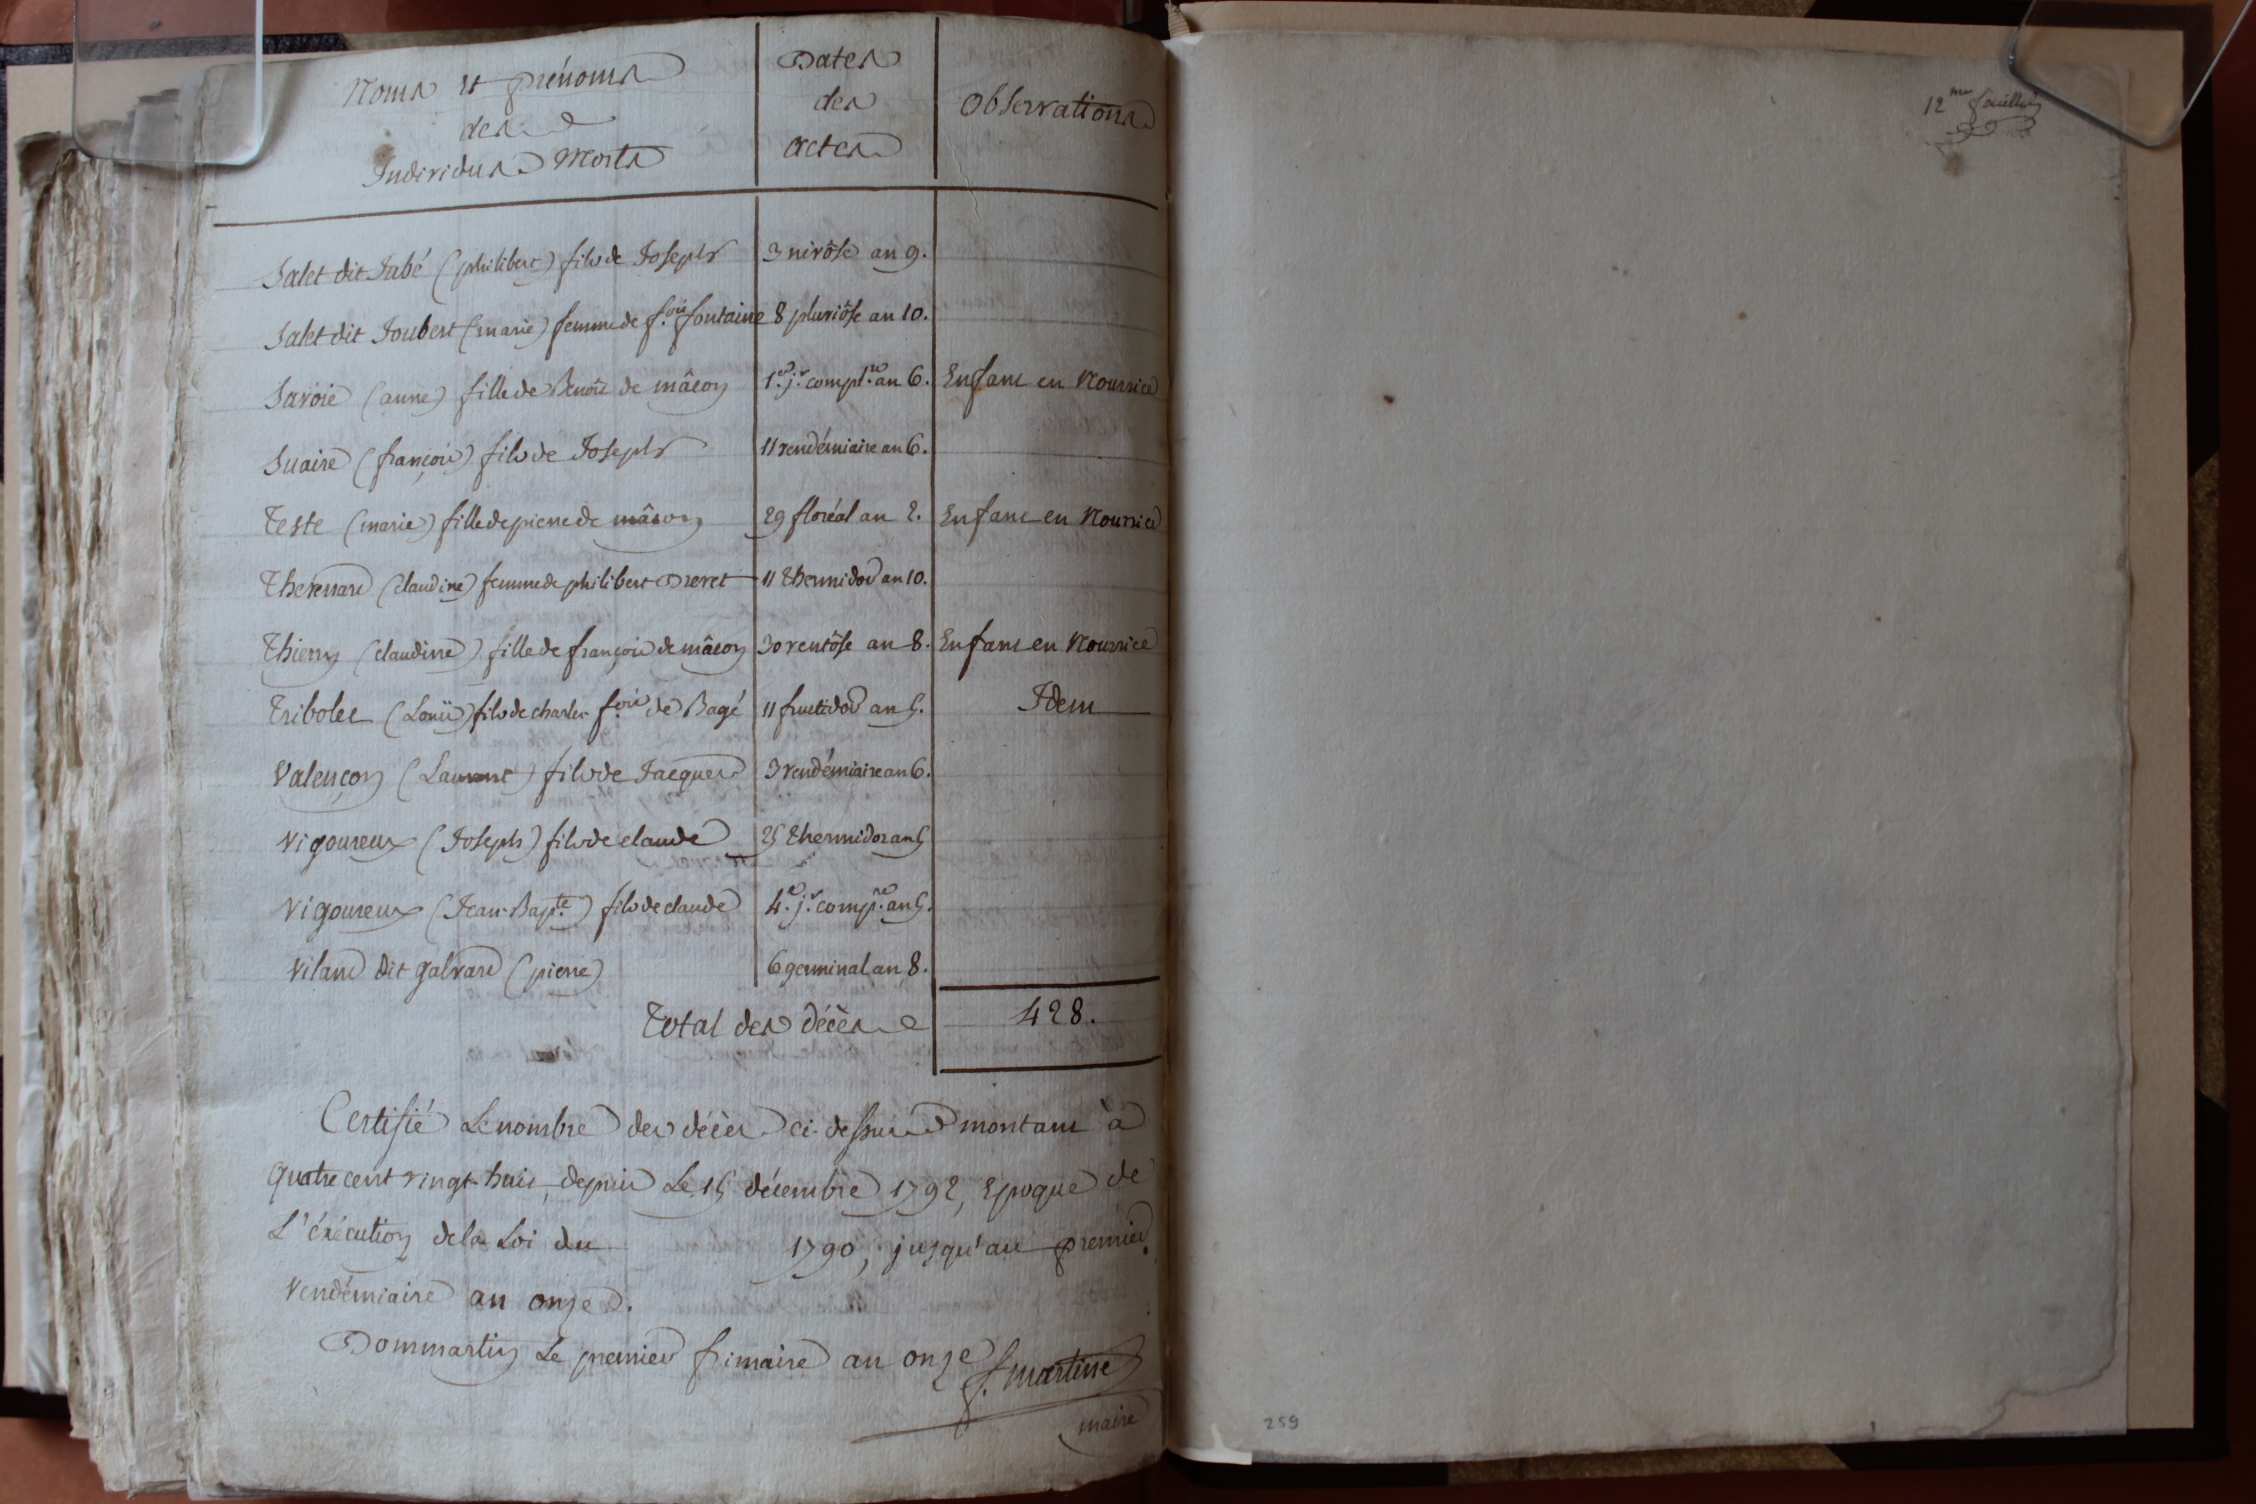 Noms et prénoms
des
Individus Morts
Dates
des
actes
Observations
Salet dit Jubé (philibert) fils de Joseph 3 nivôse an 9.
Salet dit Joubert (marie) femme de f.ois fontaine 8 pluviôse an 10.
Savoie (anne) fille de Benoit de mâcon 1.er j.r compl.re an 6. Enfant en Nourrice
Suaire (françois) fils de Joseph 11 vendémiaire an 6.
Teste (marie) fille de pierre de mâcon 29 floréal an 2. Enfant en Nourrice
(claudine) femme de philibert 11 thermidor an 10.
Thierry (claudine) fille de françois de mâcon 30 ventôse an 8. Enfant en Nourrice
Tribolet (Louis) fils de charles f.ois de Bagé 11 fructidor an 5. Idem
Valençon (Laurent) fils de Jacques 3 vendémiaire an 6.
Vigoureux (Joseph) fils de claude 25 thermidor an 5
Vigoureux (Jean-Bap.te) fils de claude 4.e j.r comp.re an 5.
Vilard dit galvard (pierre) 6 germinal an 8.
Total des décès 428.
Certifié Le nombre des décès ci-dessus montant à
quatre cent vingt-huit, depuis Le 15 décembre 1792, Epoque de
L'éxécution de la Loi du 1790, jusqu'au premier
Vendémiaire an onze.
Dommartin Le premier frimaire an onze
f. martine
maire
12.me feuillet
259